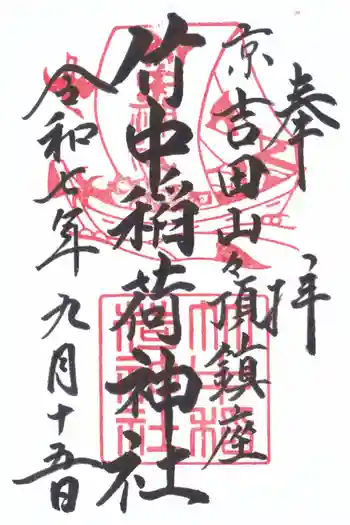 奉拝
京吉田山々頂鎮座
竹中稲荷神社
令和七年九月十五日